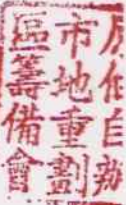 自辦
市地重劃
區籌備會